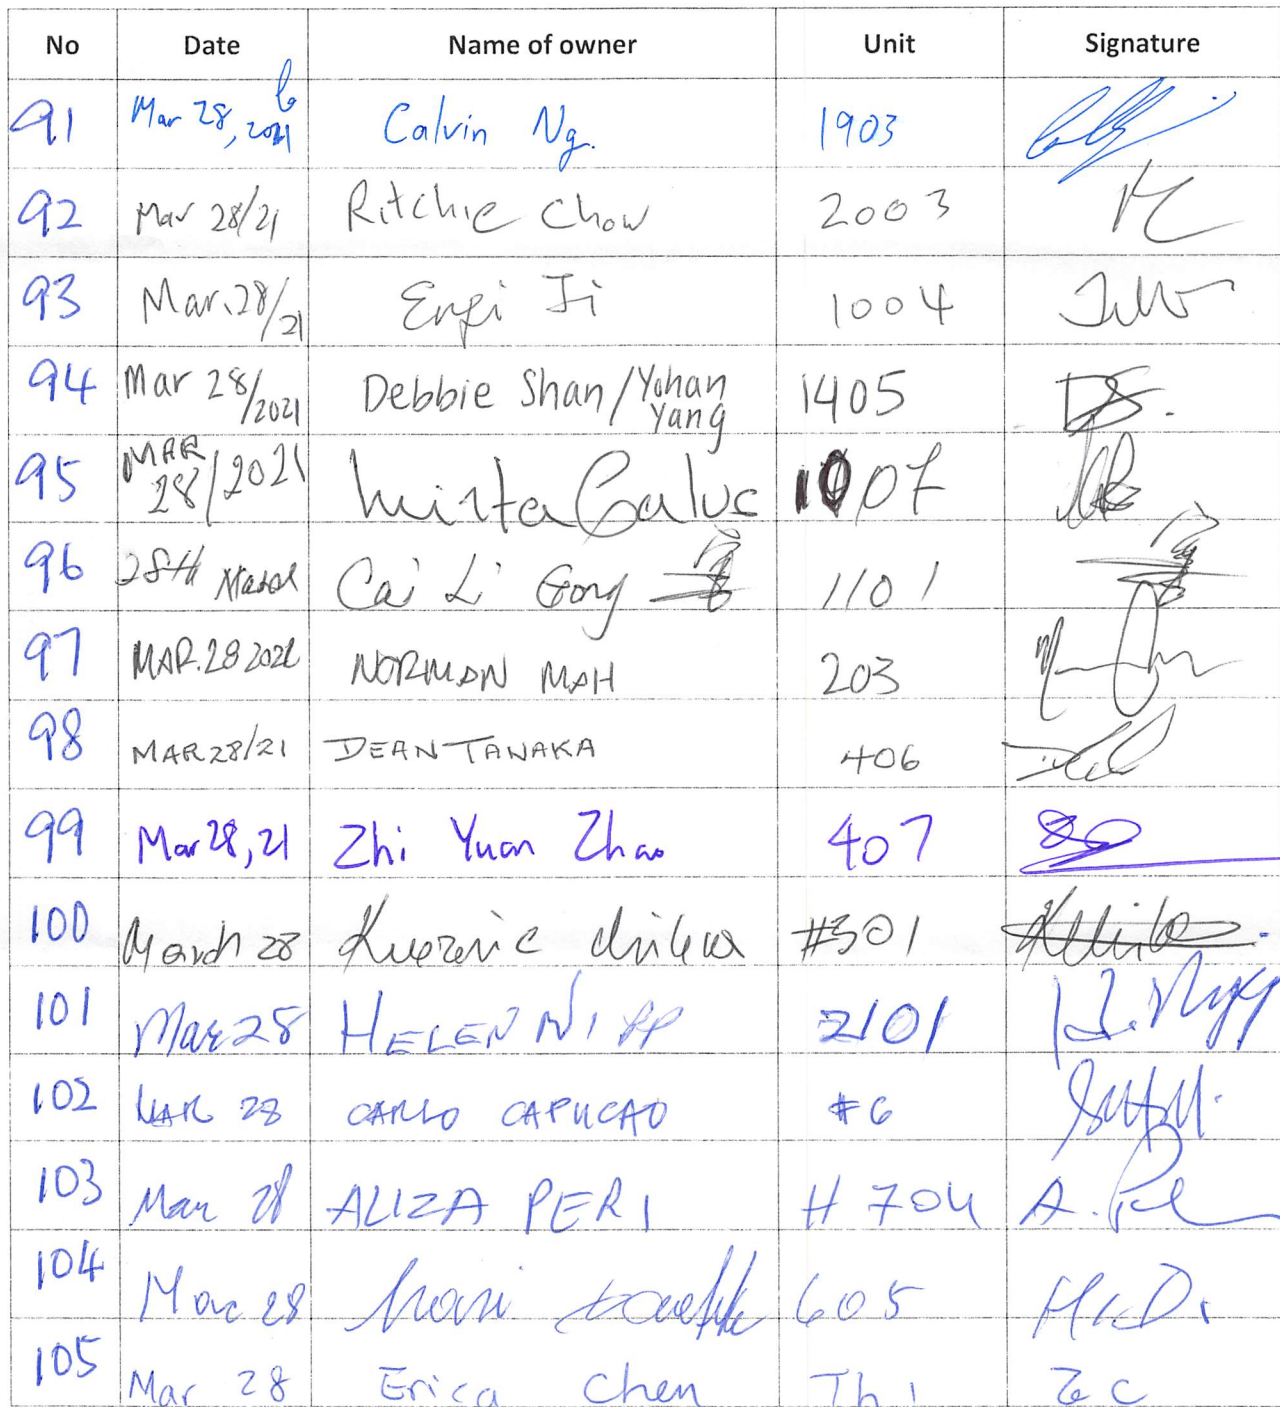 No Date Name of owner Unit Signature
91 Mar 28, 2021 Calvin Ng. 1903
92 Mar 28/21 Ritchie Chow 2003
93 Mar. 28/21 Ji 1004
94 Mar 28/2021 Debbie Shan/Yohan Yang 1405 DS.
95 MAR 28/2021 Mirta 1007
96 28th March Cai Li Gong 1101
97 MAR. 28 2021 NORMAN MAH 203
98 MAR 28/21 DEAN TANAKA 406
99 Mar 28, 21 Zhi Yuan Zhao 407
100 March 28 #301
101 Mar 28 HELEN NIPP 2101
102 MAR 28 CARLO CAPUCAO #6
103 Mar 28 ALIZA PERI #704
104 Mar 28 605 H.D.
105 Mar 28 Erica Chen Th1 EC